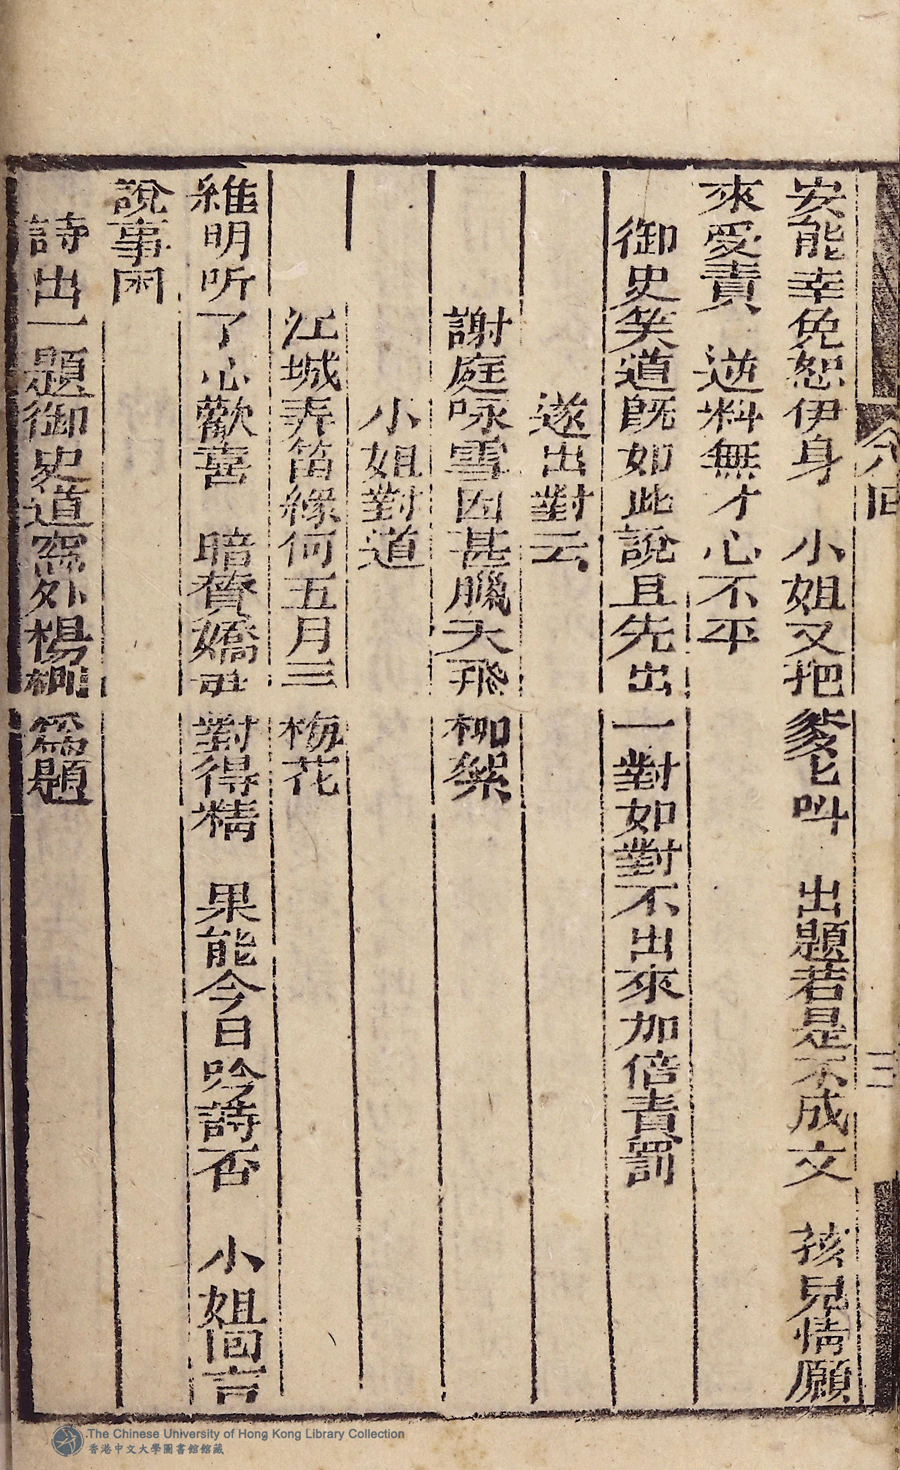 安能幸免恕伊身　小姐又把爹匕叫　出題若是不成文　孩兒情願
來受責　逆料無才心不平
御史笑道既如此說且先出一對如對不出來加倍責罰
遂出對云
謝庭咏雪因甚臘天飛柳絮
小姐對道
江城弄笛緣何五月三梅花
維明听了心歡喜　暗賛嬌　對得精　果能今日吟詩否　小姐回言
說事困
詩出一題御史道窓外楊柳為題
八回
三
.The Chinese University of Hong Kong Library Collection
香港中文大學圖書館館藏